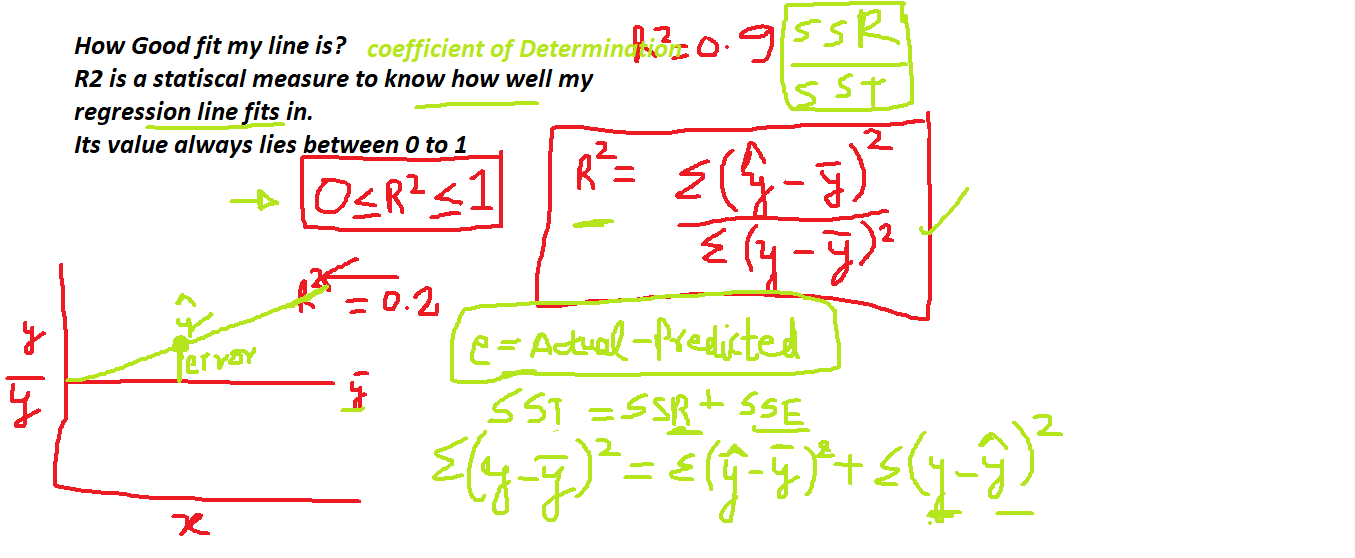 How Good fit my line is? coefficient of Determination R²=0.9 SSR
SST
R2 is a statiscal measure to know how well my
regression line fits in.
Its value always lies between 0 to 1
0≤R²≤1
R² = Σ(ŷ-ȳ)²
Σ(y-ȳ)²
R² = 0.2
ŷ
error
y
ȳ
ȳ
x
e = Actual-Predicted
SST = SSR + SSE
Σ(y-ȳ)² = Σ(ŷ-ȳ)² + Σ(y-ŷ)²